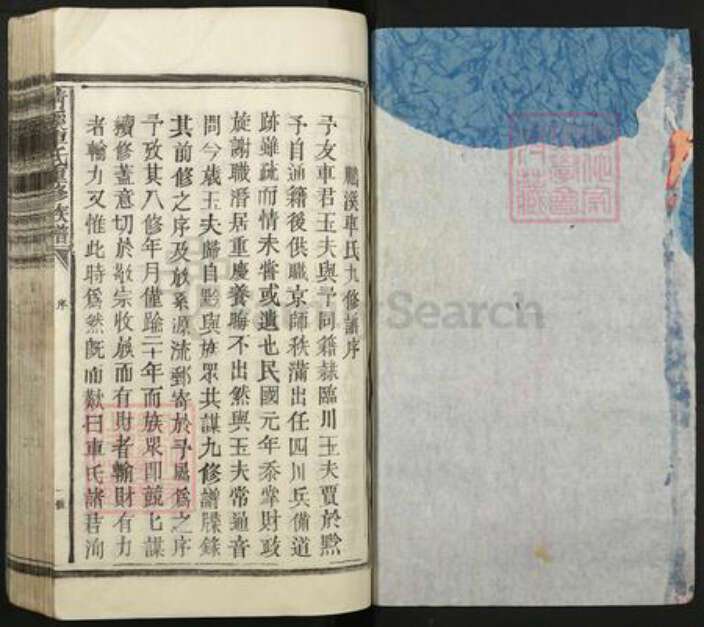 鵬溪車氏九修譜序
予友車君玉夫與予同籍隸臨川玉夫賈於黔
予自通籍後供職京師秩滿出任四川兵備道
跡雖疏而情未嘗或遺也民國元年忝掌財政
旋謝職潛居重慶養晦不出然與玉夫常通音
問今歲玉夫歸自黔與族眾共謀九修譜牒錄
其前修之序及族系源流郵寄於予屬為之序
予攷其八修年月僅踰二十年而族眾即兢兢謀
續修蓋意切於敬宗收族而有財者輸財有力
者輸力又惟此時為然既而歎曰車氏諸君洵
車氏重修族譜
序
一
FamilySearch